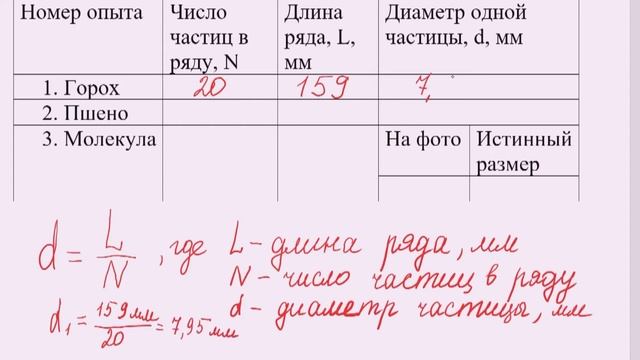 Номер опыта Число частиц в ряду, N Длина ряда, L, мм Диаметр одной частицы, d, мм
1. Горох 20 159 7,
2. Пшено
3. Молекула На фото Истинный размер
d = L/N, где L - длина ряда, мм
N - число частиц в ряду
d - диаметр частицы, мм
d₁ = 159 мм/20 = 7,95 мм